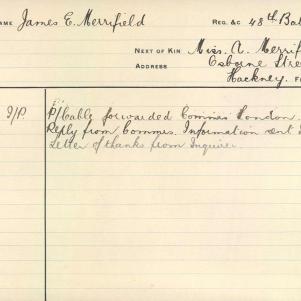 NAME James E. Merrifield REG. &C 48th Bat
NEXT OF KIN Miss. A. Merrif
ADDRESS Osborne Stre
Hackney.
I/P. P/Cable forwarded Commrs London.
Reply from Commrs. Information sent
Letter of thanks from Inquirer.